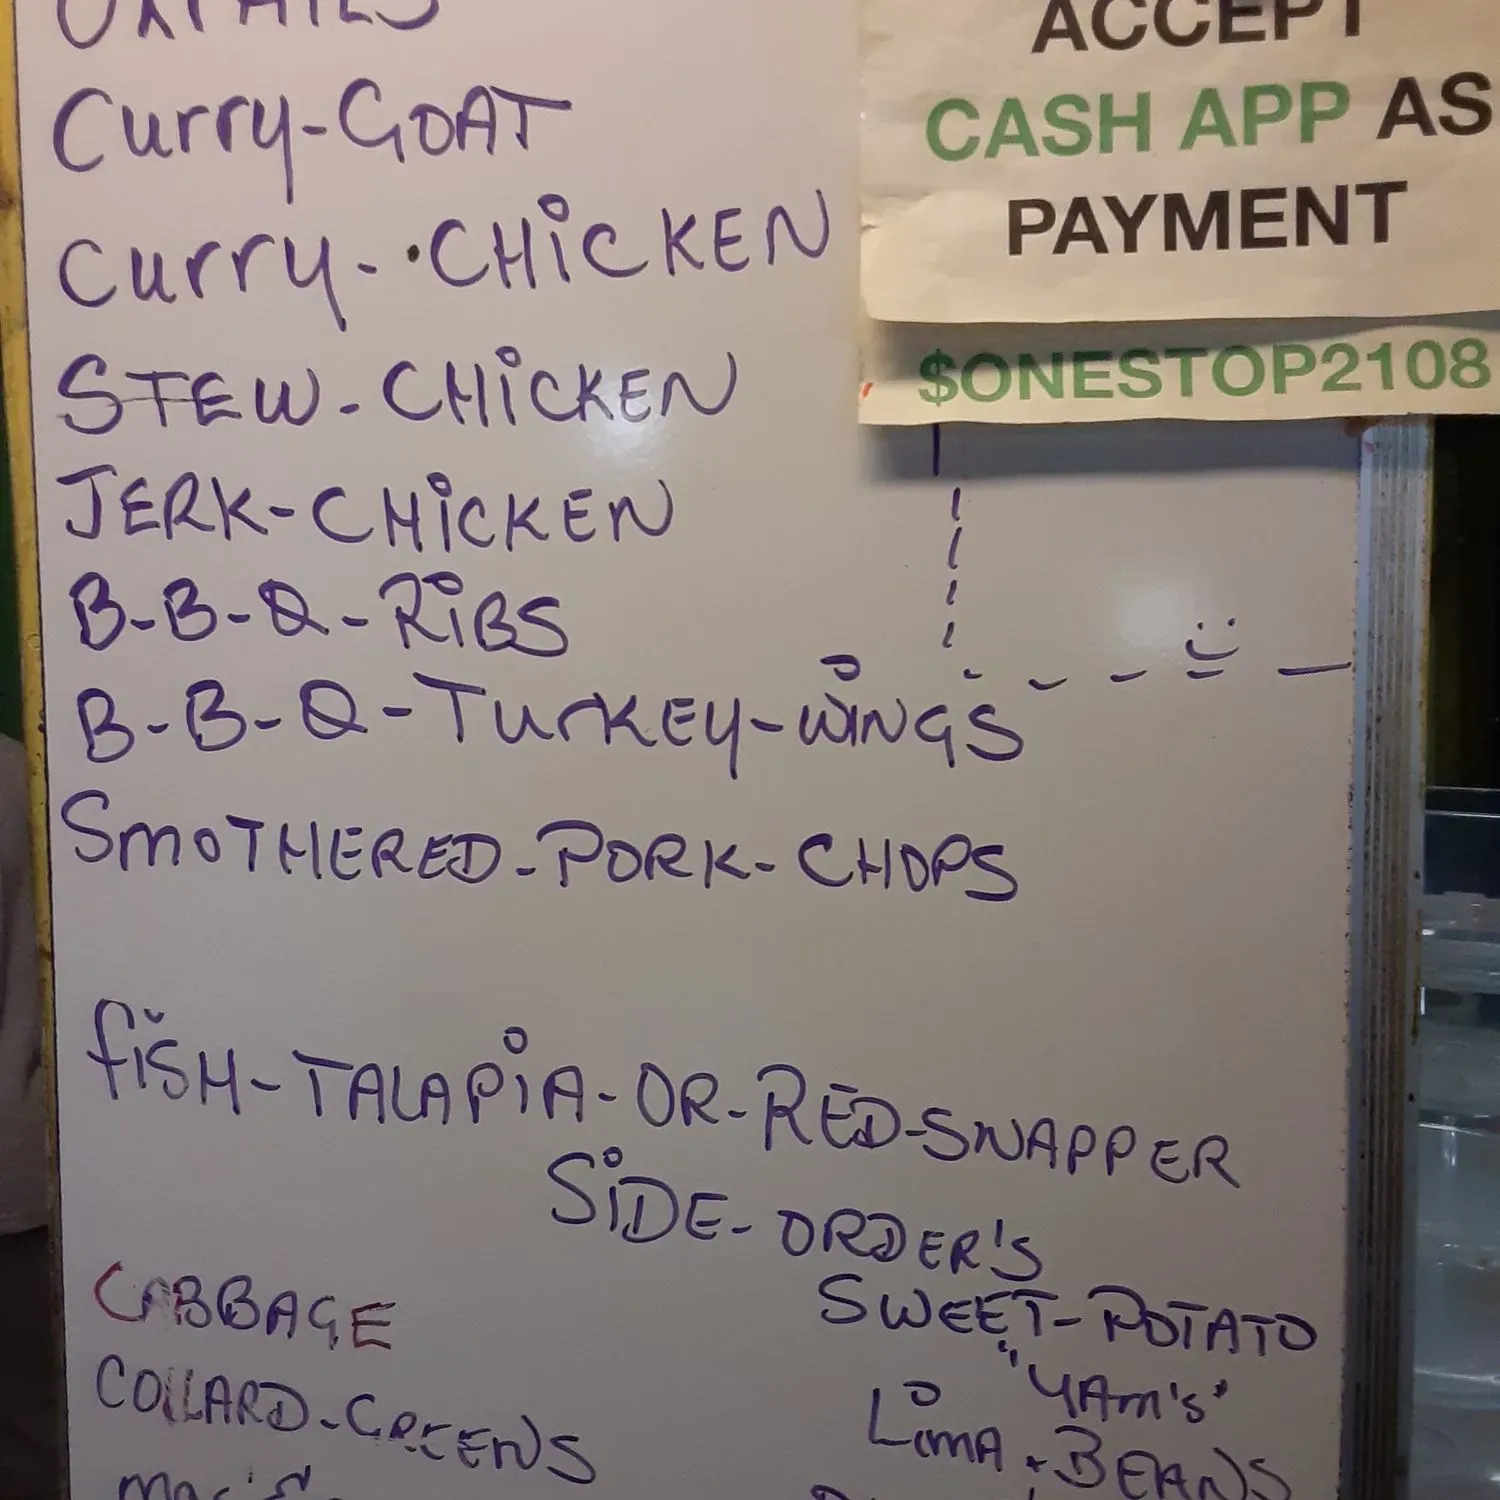 OXTAILS
Curry-GOAT
Curry-.CHiCKEN
STEW-CHiCKEN
JERK-CHiCKEN
B-B-Q-RiBS
B-B-Q-TurKEY-WiNGS
SmOTHERED-PORK-CHOPS
fiSH-TALAPiA-OR-RED-SNAPPER
SiDE-ORDER'S
CABBAGE
COLLARD-GREENS
SWEET-POTATO
"YAm'S"
LimA.BEANS
ACCEPT
CASH APP AS
PAYMENT
$ONESTOP2108